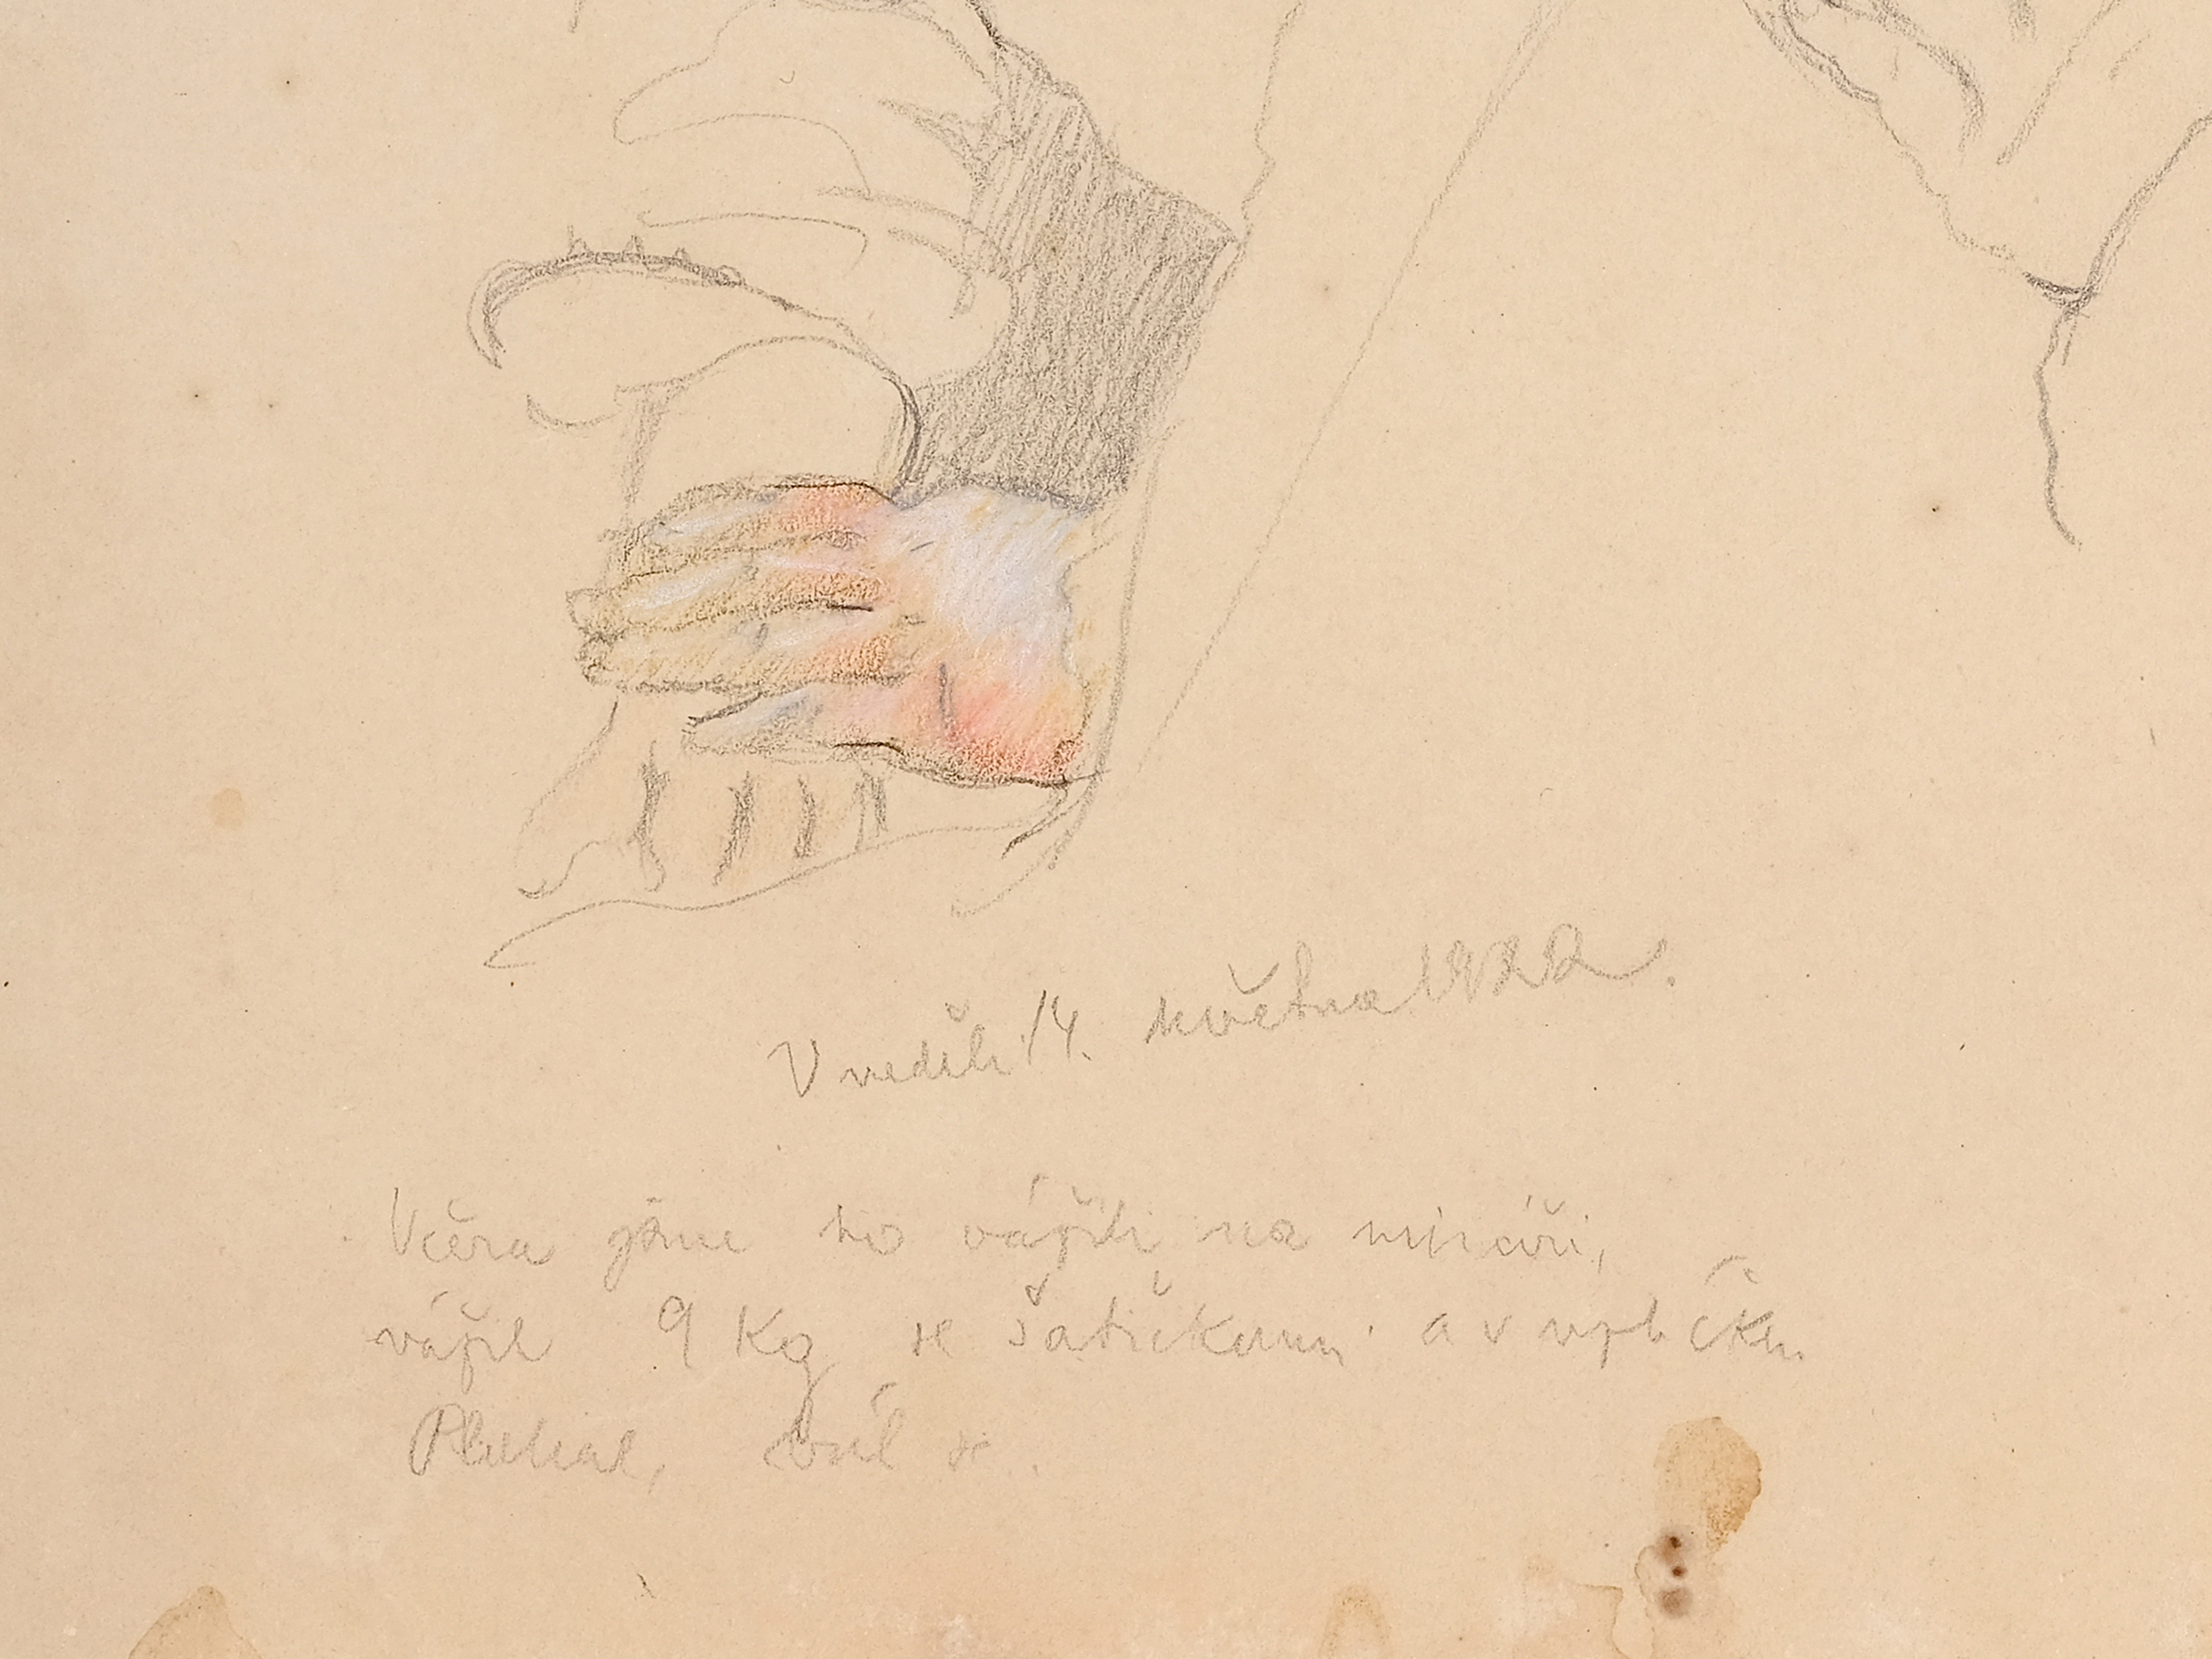 V neděli 14. května 1922.
Včera jsme ho vážili na mincíři,
vážil 9 Kg se šatičkami a v
Plakal, bál se.